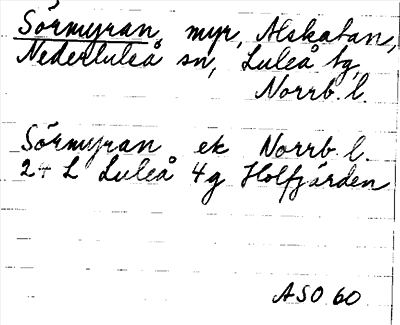 Sörmyran, myr, Alskatan,
Nederluleå sn, Luleå tg,
Norrb. l.
Sörmyran ek Norrb. l.
24 L Luleå 4g Holfjärden
ASO 60